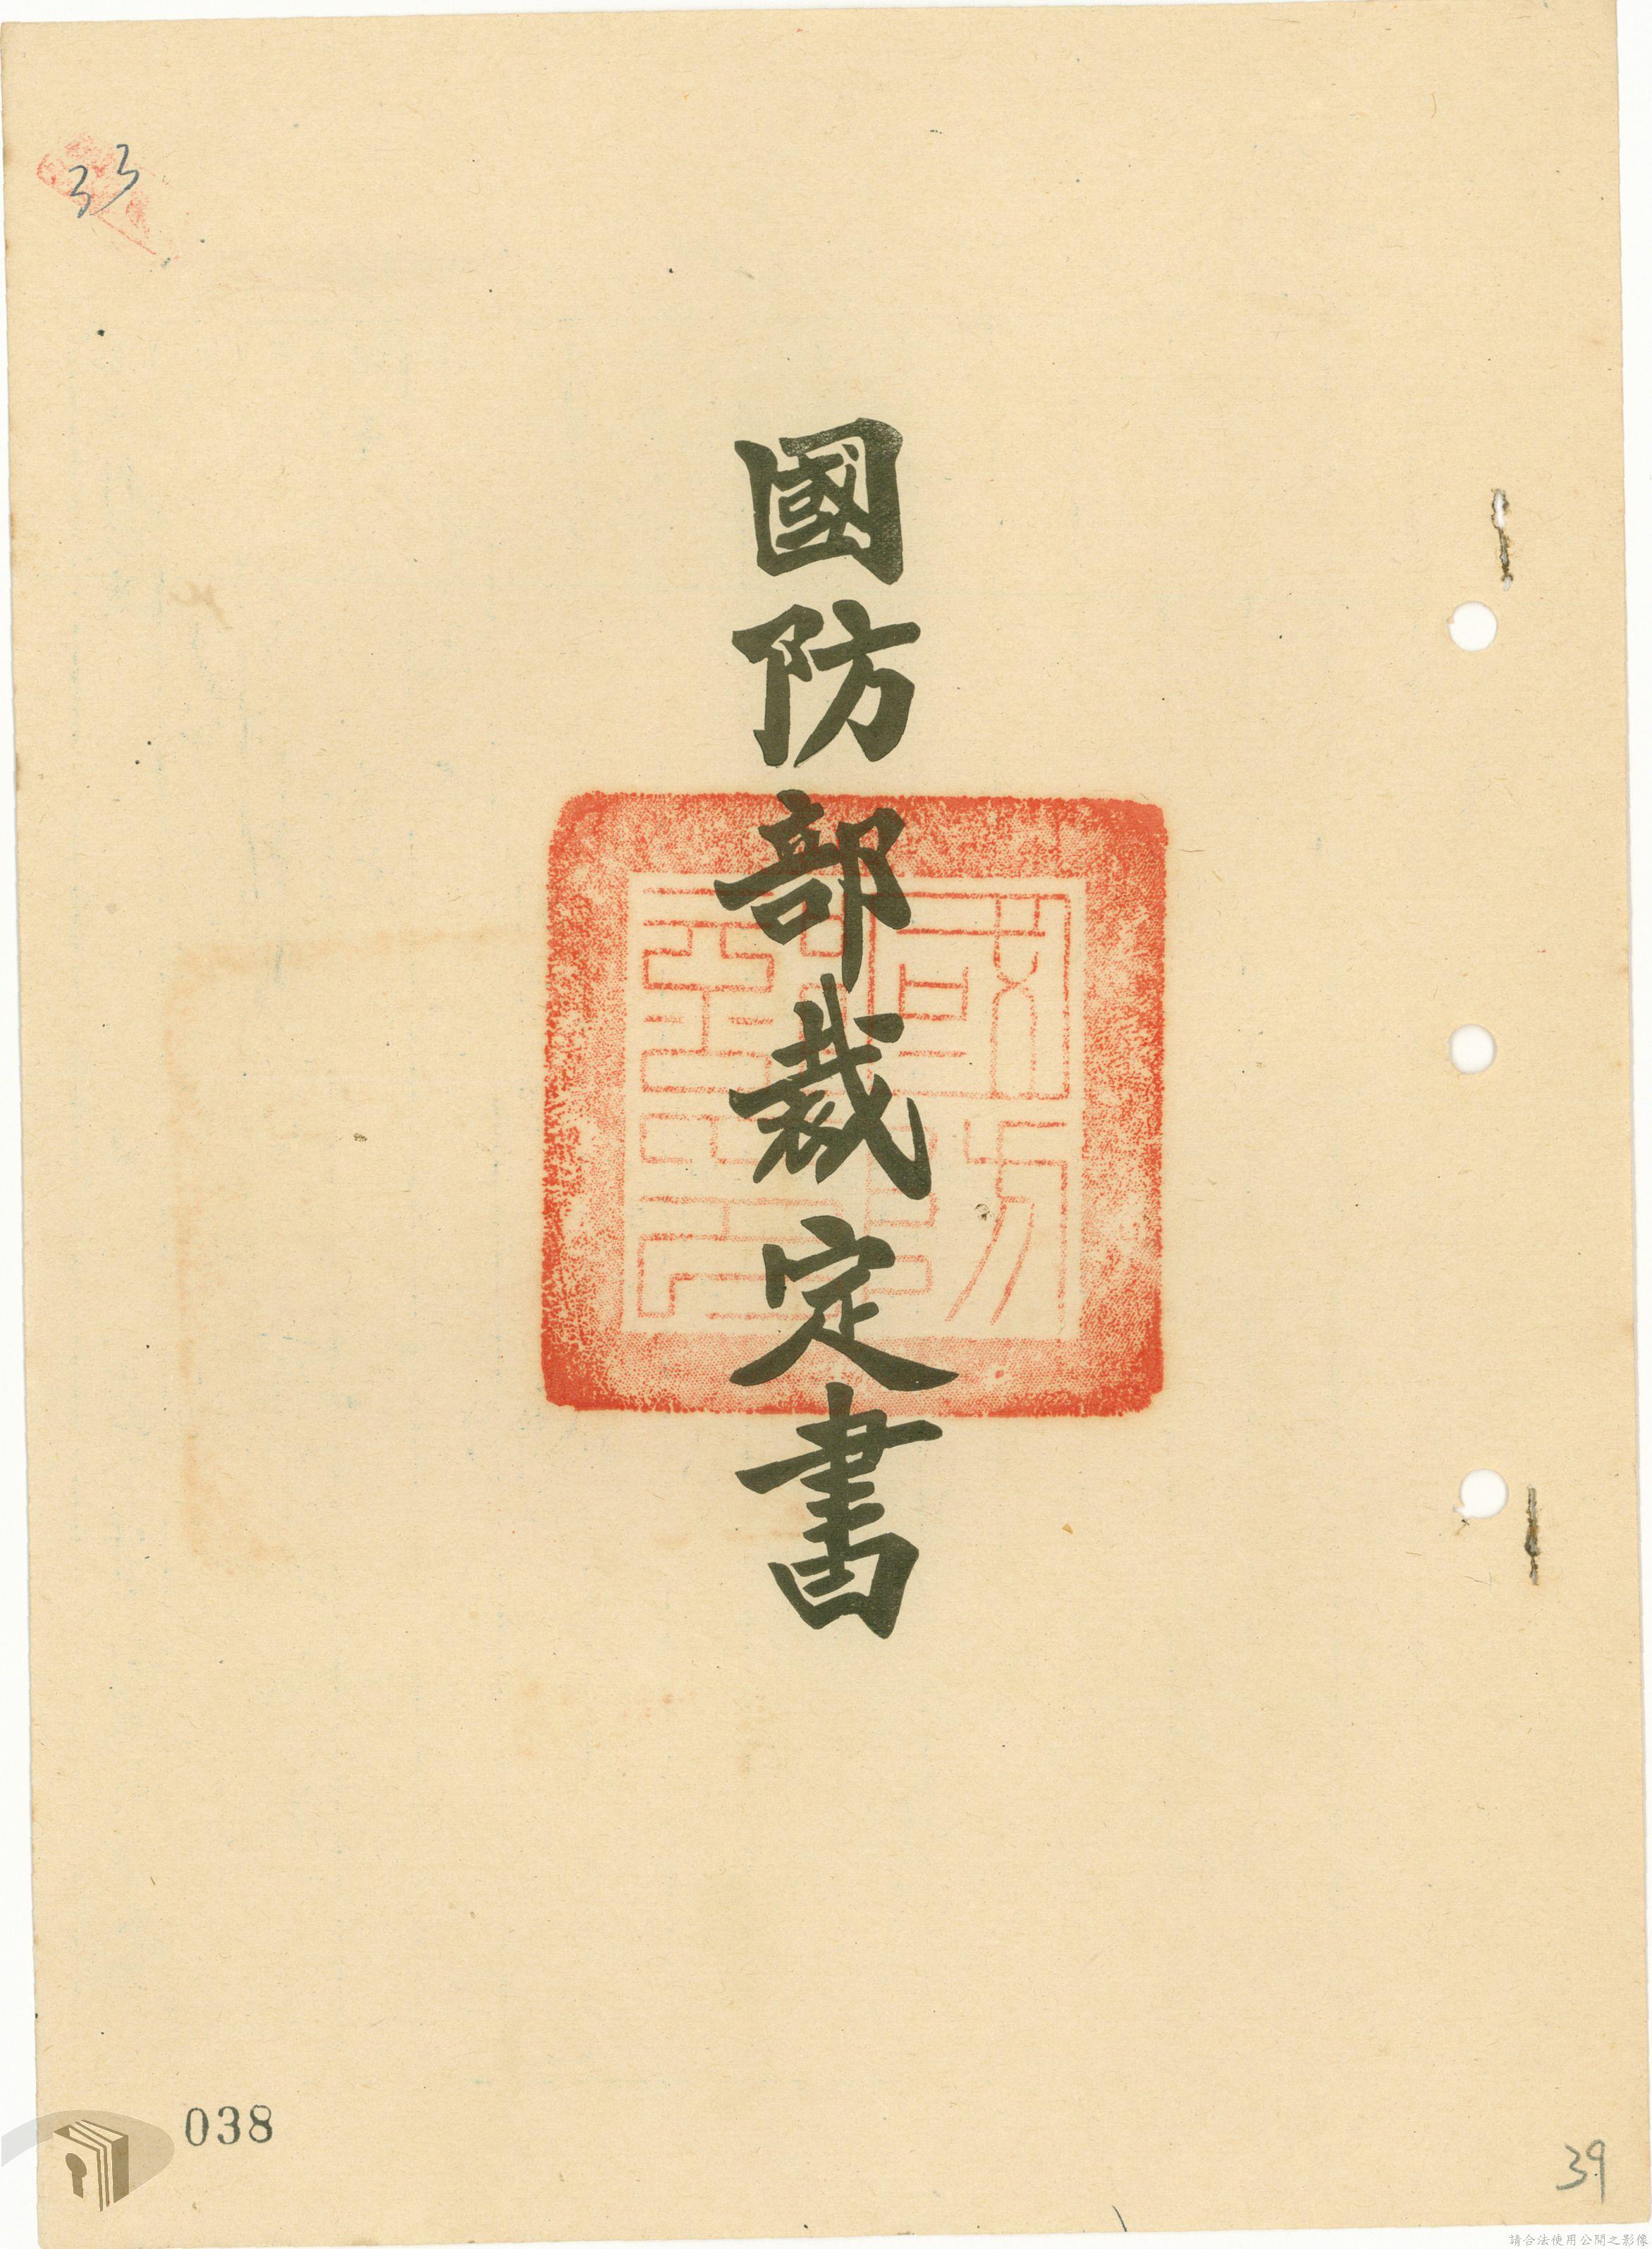 33
國防部裁定書
國防部印
038
39
請合法使用公開之影像